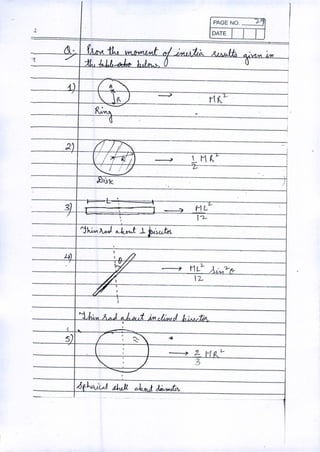 PAGE NO. 29
DATE
Q:- Prove the moment of inertia results given in
the table below.
1) R → MR²
Ring
2) R → 1/2 MR²
Disk
3) L → ML²/12
Thin rod about ⊥ bisector
4) θ → ML²/12 sin²θ
Thin rod about inclined bisector
5) → 2/3 MR²
Spherical shell about diameter